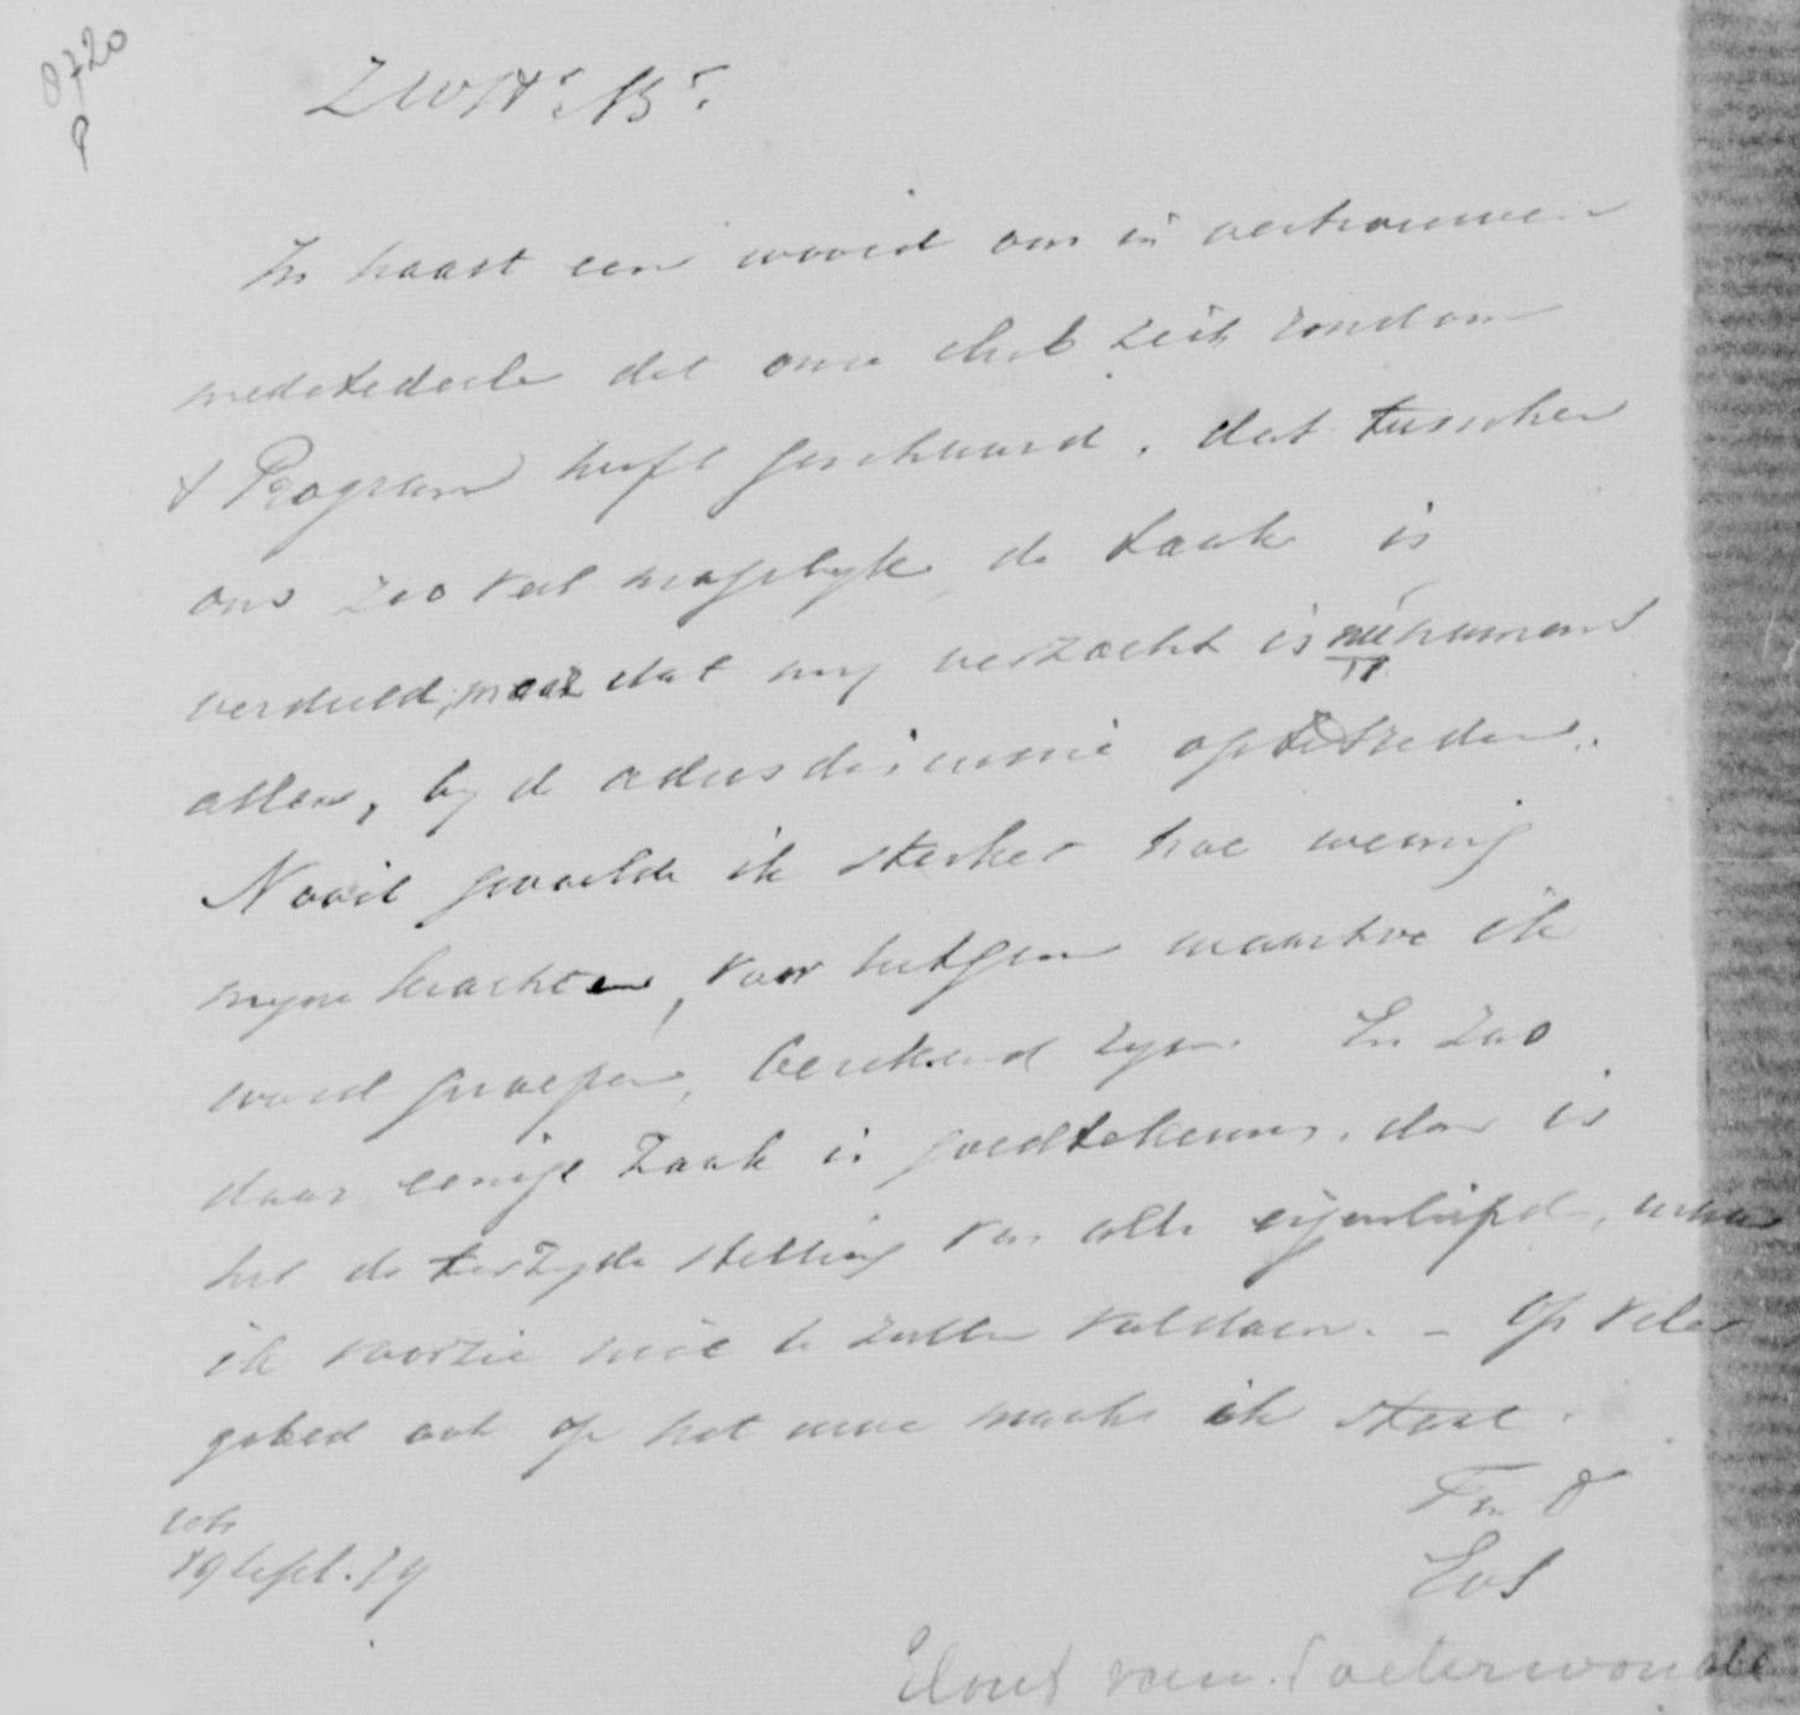 0720
P
ZWHr. Br.
In haast een woord om in vertrouwen
mededeelen dat onze club zich rondom
't Program heeft geschaard, dat tusschen
ons zoo veel mogelyk de taak is
verdeeld, maar dat my verzocht is
allen, by de adresdiscussie optetreden.
Nooit gevoelde ik sterker hoe weinig
myne krachten, voor hetgeen waartoe ik
word geroepen, berekend zyn. En zoo
daar eenige zaak is goedtekeuren, dan is
het de terzyde stelling van alle eigenliefde,
ik voorzie niet te zullen voldoen. - Op veler
gebed ook op het uwe maak ik staat.
19 Sept. 79
EvS
Elout van Soeterwoude